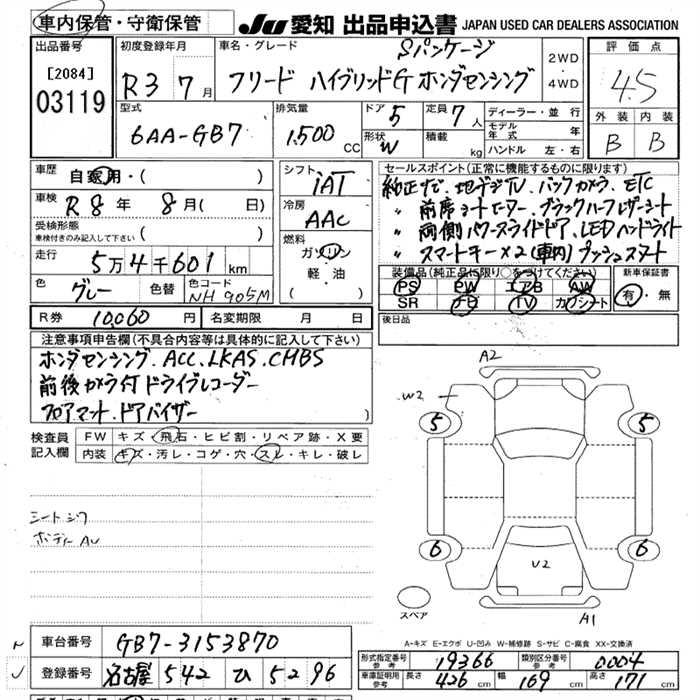 車内保管・守衛保管
JU 愛知 出品申込書 JAPAN USED CAR DEALERS ASSOCIATION
出品番号
[2084]
03119
初度登録年月
R3 7月
車名・グレード
Sパッケージ
フリード ハイブリッドG ホンダセンシング
2WD
・
4WD
評価点
4.5
外装 内装
B B
型式
6AA-GB7
排気量
1,500 CC
ドア 5
形状 W
定員 7人
積載 kg
ディーラー・並行
モデル年式 年
ハンドル 左・右
車歴
自家用・( )
車検
R8年 8月( 日)
受検形態
車検付きのみ記入して下さい ( )
走行
5万4千601km
色 グレー 色替 色コード NH905M
シフト
iAT
冷房
AAC
燃料
ガソリン
軽・油
( )
セールスポイント(正常に機能するものに限ります)
純正ナビ.地デジTV.バックカメラ.ETC
〃 前席シートヒーター.ブラックハーフレザーシート
〃 両側パワースライドドア.LEDヘッドライト
〃 スマートキー×2(車内)プッシュスタート
装備品(純正品に限り○をつけてください)
PS PW エアB AW
SR ナビ TV カワシート
新車保証書
有・無
R券 10,060円 名変期限 月 日
後日品
注意事項申告欄(不具合内容等は具体的に記入して下さい)
ホンダセンシング.ACC.LKAS.CMBS
前後カメラ付ドライブレコーダー
フロアマット.ドアバイザー
検査員記入欄
FW キズ・飛石・ヒビ割・リペア跡・X要
内装 キズ・汚レ・コゲ・穴・スレ・キレ・破レ
シートシワ
ボディーAU
A2
W2
5 5
6 6
U2
A1
スペア
A-キズ E-エクボ U-凹み W-補修跡 S-サビ C-腐食 XX-交換済
車台番号 GB7-3153870
登録番号 名古屋 542 ひ 5296
形式指定番号 参考 19366 類別区分番号 参考 0004
車庫証明用 参考 長さ 426cm 幅 169cm 高さ 171cm